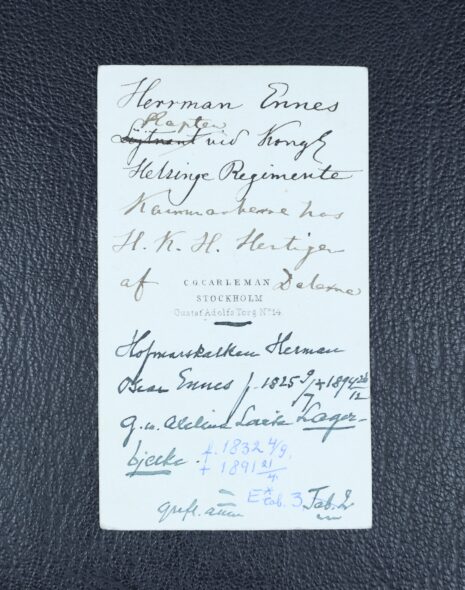 Herrman Ennes
Kapten
Löjtnant vid Kongl
Helsinge Regimente
Kammarherre hos
H. K. H. Hertigen
af Dalarne
C.G. CARLEMAN
STOCKHOLM
Gustaf Adolfs Torg Nº 14.
Hofmarskalken Herman
Oscar Ennes f. 1825 9/7 + 1894 26/12
g. m. Adelina Lovisa Lager-
bjelke.
f. 1832 4/9
+ 1891 21/4.
Tab. 2
grefl. ätten